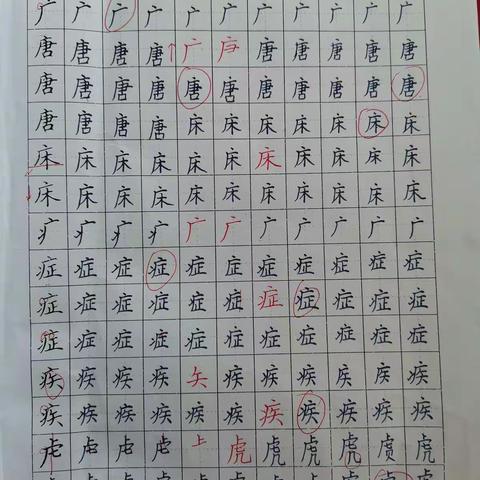 广广广广广广广广广广广
唐唐唐唐广唐唐唐唐唐
唐唐唐唐唐唐唐唐唐唐唐
唐唐唐唐床床床床床床床
床床床床床床床床床床床
床床床床床床床床床床床
疒疒疒疒广广广广广广广
症症症症症症症症症症症
症症症症症症症症症症症
症症症症症症症症症症症
疾疾疾疾矢疾疾疾疾疾疾
疾疾疾疾疾疾疾疾疾疾疾
虍虍虍虍上虎虎虎虎虎虎